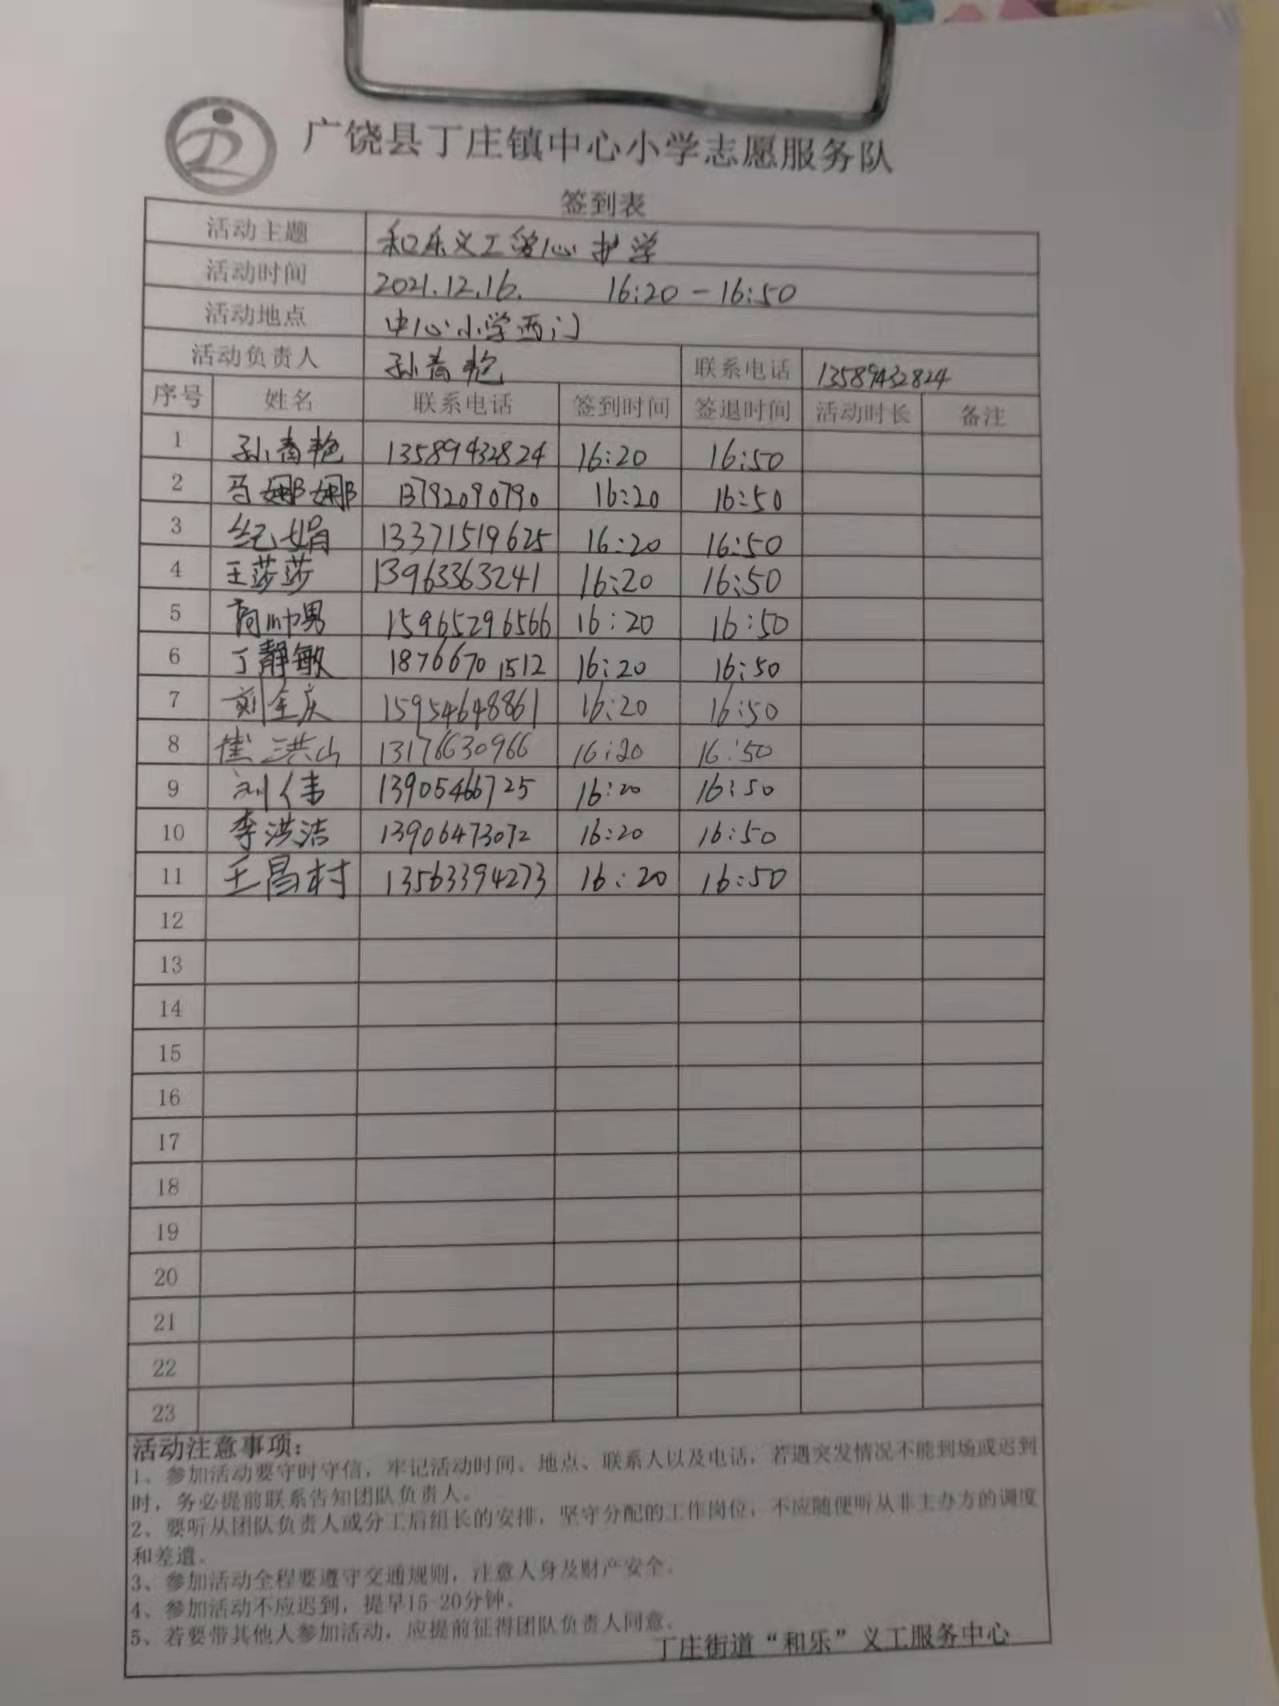 广饶县丁庄镇中心小学志愿服务队
签到表
活动主题 和乐义工爱心护学
活动时间 2021.12.16. 16:20-16:50
活动地点 中心小学西门
活动负责人 孙青艳 联系电话 13589432824
序号 姓名 联系电话 签到时间 签退时间 活动时长 备注
1 孙青艳 13589432824 16:20 16:50
2 马娜娜 13792090790 16:20 16:50
3 纪娟 13371519625 16:20 16:50
4 王莎莎 13963363241 16:20 16:50
5 帅男 15965296566 16:20 16:50
6 丁静敏 18766701512 16:20 16:50
7 刘金庆 15954648861 16:20 16:50
8 洪山 13176630966 16:20 16:50
9 刘伟 13905466725 16:20 16:50
10 李洪洁 13906473072 16:20 16:50
11 王昌村 13563394273 16:20 16:50
12
13
14
15
16
17
18
19
20
21
22
23
活动注意事项：
1、参加活动要守时守信，牢记活动时间、地点、联系人以及电话，若遇突发情况不能到场或迟到
时，务必提前联系告知团队负责人。
2、要听从团队负责人或分工后组长的安排，坚守分配的工作岗位，不应随便听从非主办方的调度
和差遣。
3、参加活动全程要遵守交通规则，注意人身及财产安全。
4、参加活动不应迟到，提早15-20分钟。
5、若要带其他人参加活动，应提前征得团队负责人同意。
丁庄街道“和乐”义工服务中心